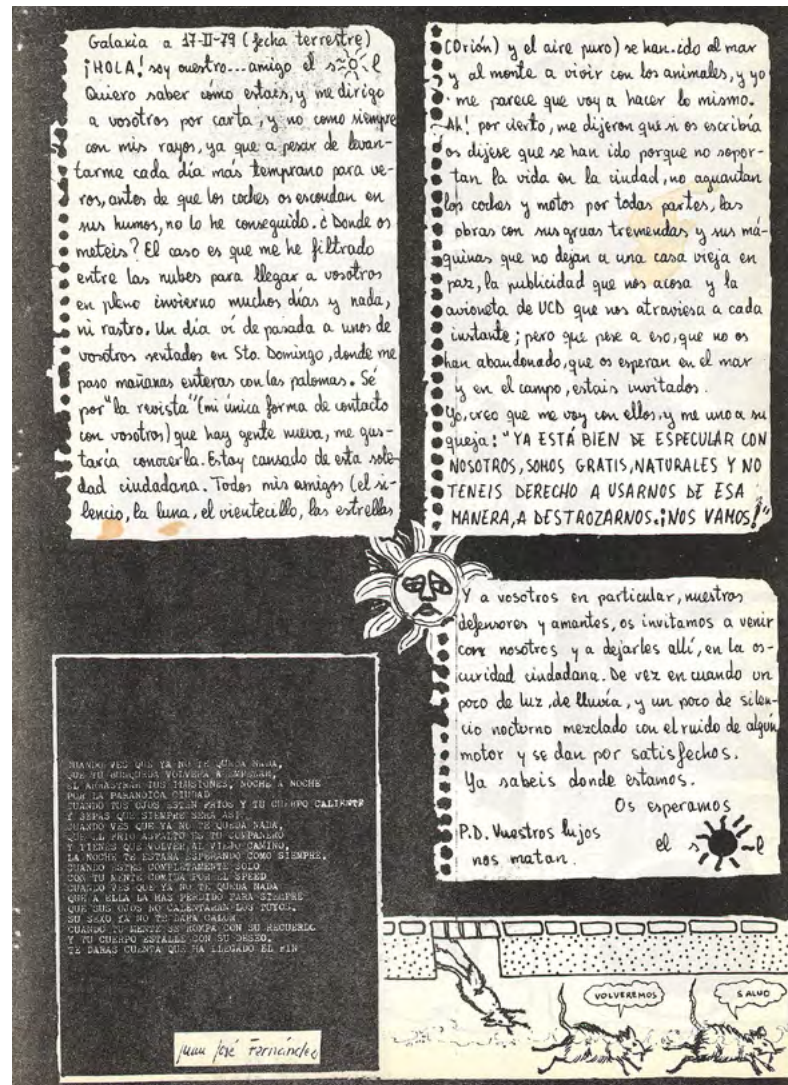 Galaxia a 17-II-79 (fecha terrestre)
¡HOLA! soy vuestro... amigo el sol
Quiero saber cómo estais, y me dirijo
a vosotros por carta, y no como siempre
con mis rayos, ya que a pesar de levan-
tarme cada día más temprano para ve-
ros, antes de que los coches os escondan en
sus humos, no lo he conseguido. ¿Donde os
meteis? El caso es que me he filtrado
entre las nubes para llegar a vosotros
en pleno invierno muchos días y nada,
ni rastro. Un día ví de pasada a unos de
vosotros sentados en Sto. Domingo, donde me
paso mañanas enteras con las palomas. Sé
por "la revista" (mi única forma de contacto
con vosotros) que hay gente nueva, me gus-
taría conocerla. Estoy cansado de esta sole-
dad ciudadana. Todos mis amigos (el si-
lencio, la luna, el vientecillo, las estrellas
(Orión) y el aire puro) se han ido al mar
y al monte a vivir con los animales, y yo
me parece que voy a hacer lo mismo.
Ah! por cierto, me dijeron que si os escribía
os dijese que se han ido porque no sopor-
tan la vida en la ciudad, no aguantan
los coches y motos por todas partes, las
obras con sus gruas tremendas y sus má-
quinas que no dejan a una casa vieja en
paz, la publicidad que nos acosa y la
avioneta de UCD que nos atraviesa a cada
instante; pero que pese a eso, que no os
han abandonado, que os esperan en el mar
y en el campo, estais invitados.
Yo, creo que me voy con ellos, y me uno a su
queja: "YA ESTÁ BIEN DE ESPECULAR CON
NOSOTROS, SOMOS GRATIS, NATURALES Y NO
TENEIS DERECHO A USARNOS DE ESA
MANERA, A DESTROZARNOS. ¡NOS VAMOS!"
Y a vosotros en particular, nuestros
defensores y amantes, os invitamos a venir
con nosotros y a dejarles allí, en la os-
curidad ciudadana. De vez en cuando un
poco de luz, de lluvia, y un poco de silen-
cio nocturno mezclado con el ruido de algún
motor y se dan por satisfechos.
Ya sabeis donde estamos.
Os esperamos
el sol
P.D. Vuestros lujos
nos matan.
CUANDO VES QUE YA NO TE QUEDA NADA,
QUE TU BUSQUEDA VOLVERA A EMPEZAR,
EL ARRASTRAR TUS ILUSIONES, NOCHE A NOCHE
POR LA PARANOICA CIUDAD
CUANDO TUS OJOS ESTEN FRIOS Y TU CUERPO CALIENTE
Y SEPAS QUE SIEMPRE SERA ASI.
CUANDO VES QUE YA NO TE QUEDA NADA,
QUE EL FRIO ASFALTO ES TU COMPAÑERO
Y TIENES QUE VOLVER AL VIEJO CAMINO,
LA NOCHE TE ESTARA ESPERANDO COMO SIEMPRE,
CUANDO ESTES COMPLETAMENTE SOLO
CON TU MENTE COMIDA POR EL SPEED
CUANDO VES QUE YA NO TE QUEDA NADA
QUE A ELLA LA HAS PERDIDO PARA SIEMPRE
QUE SUS OJOS NO CALENTARAN LOS TUYOS,
SU SEXO YA NO TE DARA CALOR
CUANDO TU MENTE SE ROMPA CON SU RECUERDO
Y TU CUERPO ESTALLE CON SU DESEO,
TE DARAS CUENTA QUE HA LLEGADO EL FIN
juan josé Fernández
VOLVEREMOS
SALUD